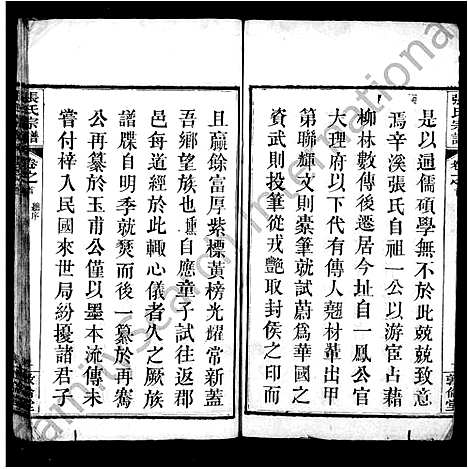 張氏宗譜
是以通儒碩學無不於此兢兢致意
焉辛溪張氏自祖一公以游宦占藉
柳林數傳後遷居今址自一鳳公官
大理府以下代有傳人翹材輩出甲
第聯輝文則橐筆就試蔚爲華國之
資武則投筆從戎艷取封侯之印而
且贏餘富厚紫標黃榜光耀常新蓋
吾鄉望族也 自應童子試往返郡
邑每道經於此輒心儀者久之厥族
譜牒自明季就燹而後一纂於再騫
公再纂於玉甫公僅以墨本流傳未
嘗付梓入民國來世局紛擾諸君子
張氏宗譜
卷之首
敦倫堂
Family Search International